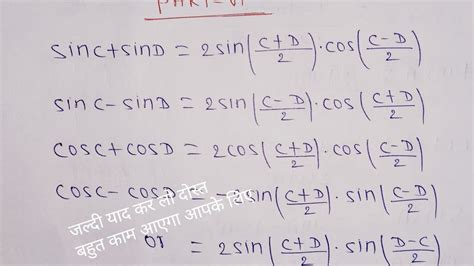 PART-VI
sinC+sinD = 2sin(C+D/2)·cos(C-D/2)
sinC-sinD = 2sin(C-D/2)·cos(C+D/2)
cosC+cosD = 2cos(C+D/2)·cos(C-D/2)
cosC-cosD = -2sin(C+D/2)·sin(C-D/2)
or = 2sin(C+D/2)·sin(D-C/2)
जल्दी याद कर लो दोस्त
बहुत काम आएगा आपके लिए